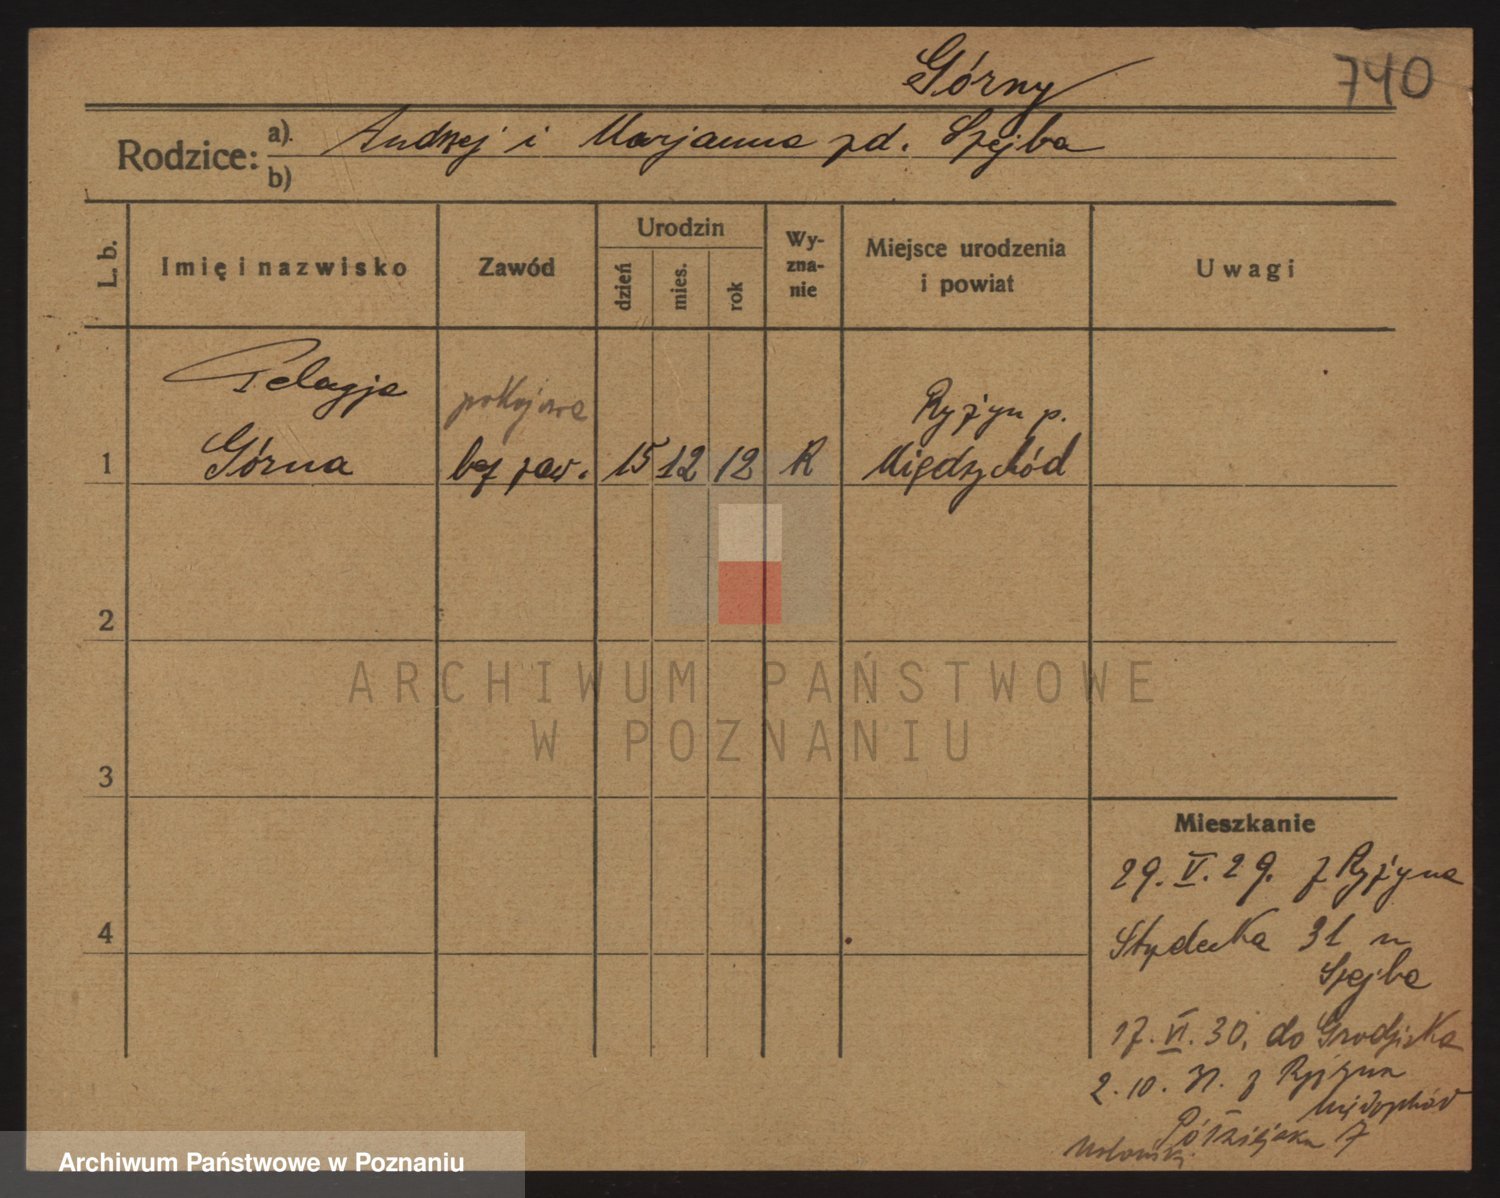 Górny
740
Rodzice:
a). Andrzej i Marjanna zd. Szejba
b)
L. b.
Imię i nazwisko
Zawód
Urodzin
dzień
mies.
rok
Wy-
zna-
nie
Miejsce urodzenia
i powiat
Uwagi
Pelagja
pokojowa
Ryżyn p.
1 Górna bez zaw. 15 12 12 R Międzychód
2
3
4
ARCHIWUM PAŃSTWOWE
W POZNANIU
Mieszkanie
29. V. 29. z Ryżyna
31 u
Szejba
17. VI. 30. do Grodziska
2. 10. 31. z Ryżyna
Międzychód
Półwiejska 7
Archiwum Państwowe w Poznaniu